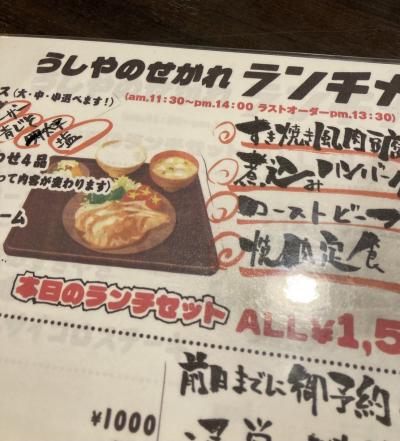 うしやのせがれ ランチ
ス(大・中・小選べます!) (am.11:30~pm.14:00 ラストオーダーpm.13:30)
青じそ
塩
すき焼き風肉豆腐
わせ4品
煮込みハンバー
って内容が変わります)
ローストビーフ
ーム
焼肉定食
本日のランチセット ALL¥1,5
前日までに御予約
¥1000